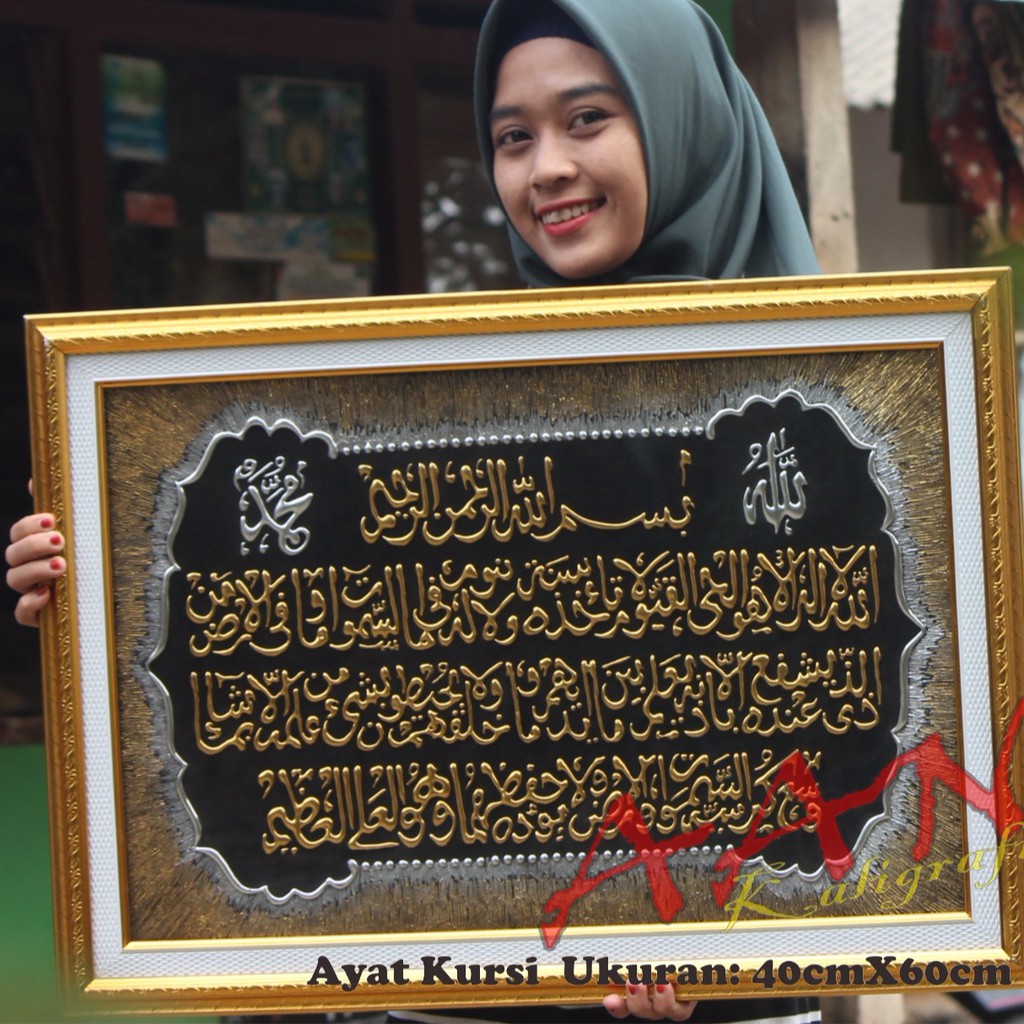 الله
بسم الله الرحمن الرحيم
محمد
الله لا اله الا هو الحي القيوم لا تأخذه سنة ولا نوم له ما في السموات وما في الارض من
ذا الذي يشفع عنده الا باذنه يعلم ما بين ايديهم وما خلفهم ولا يحيطون بشيء من علمه الا بما شاء
وسع كرسيه السموات والارض ولا يؤده حفظهما وهو العلي العظيم
AAN
Kaligrafi
Ayat Kursi Ukuran: 40cmX60cm